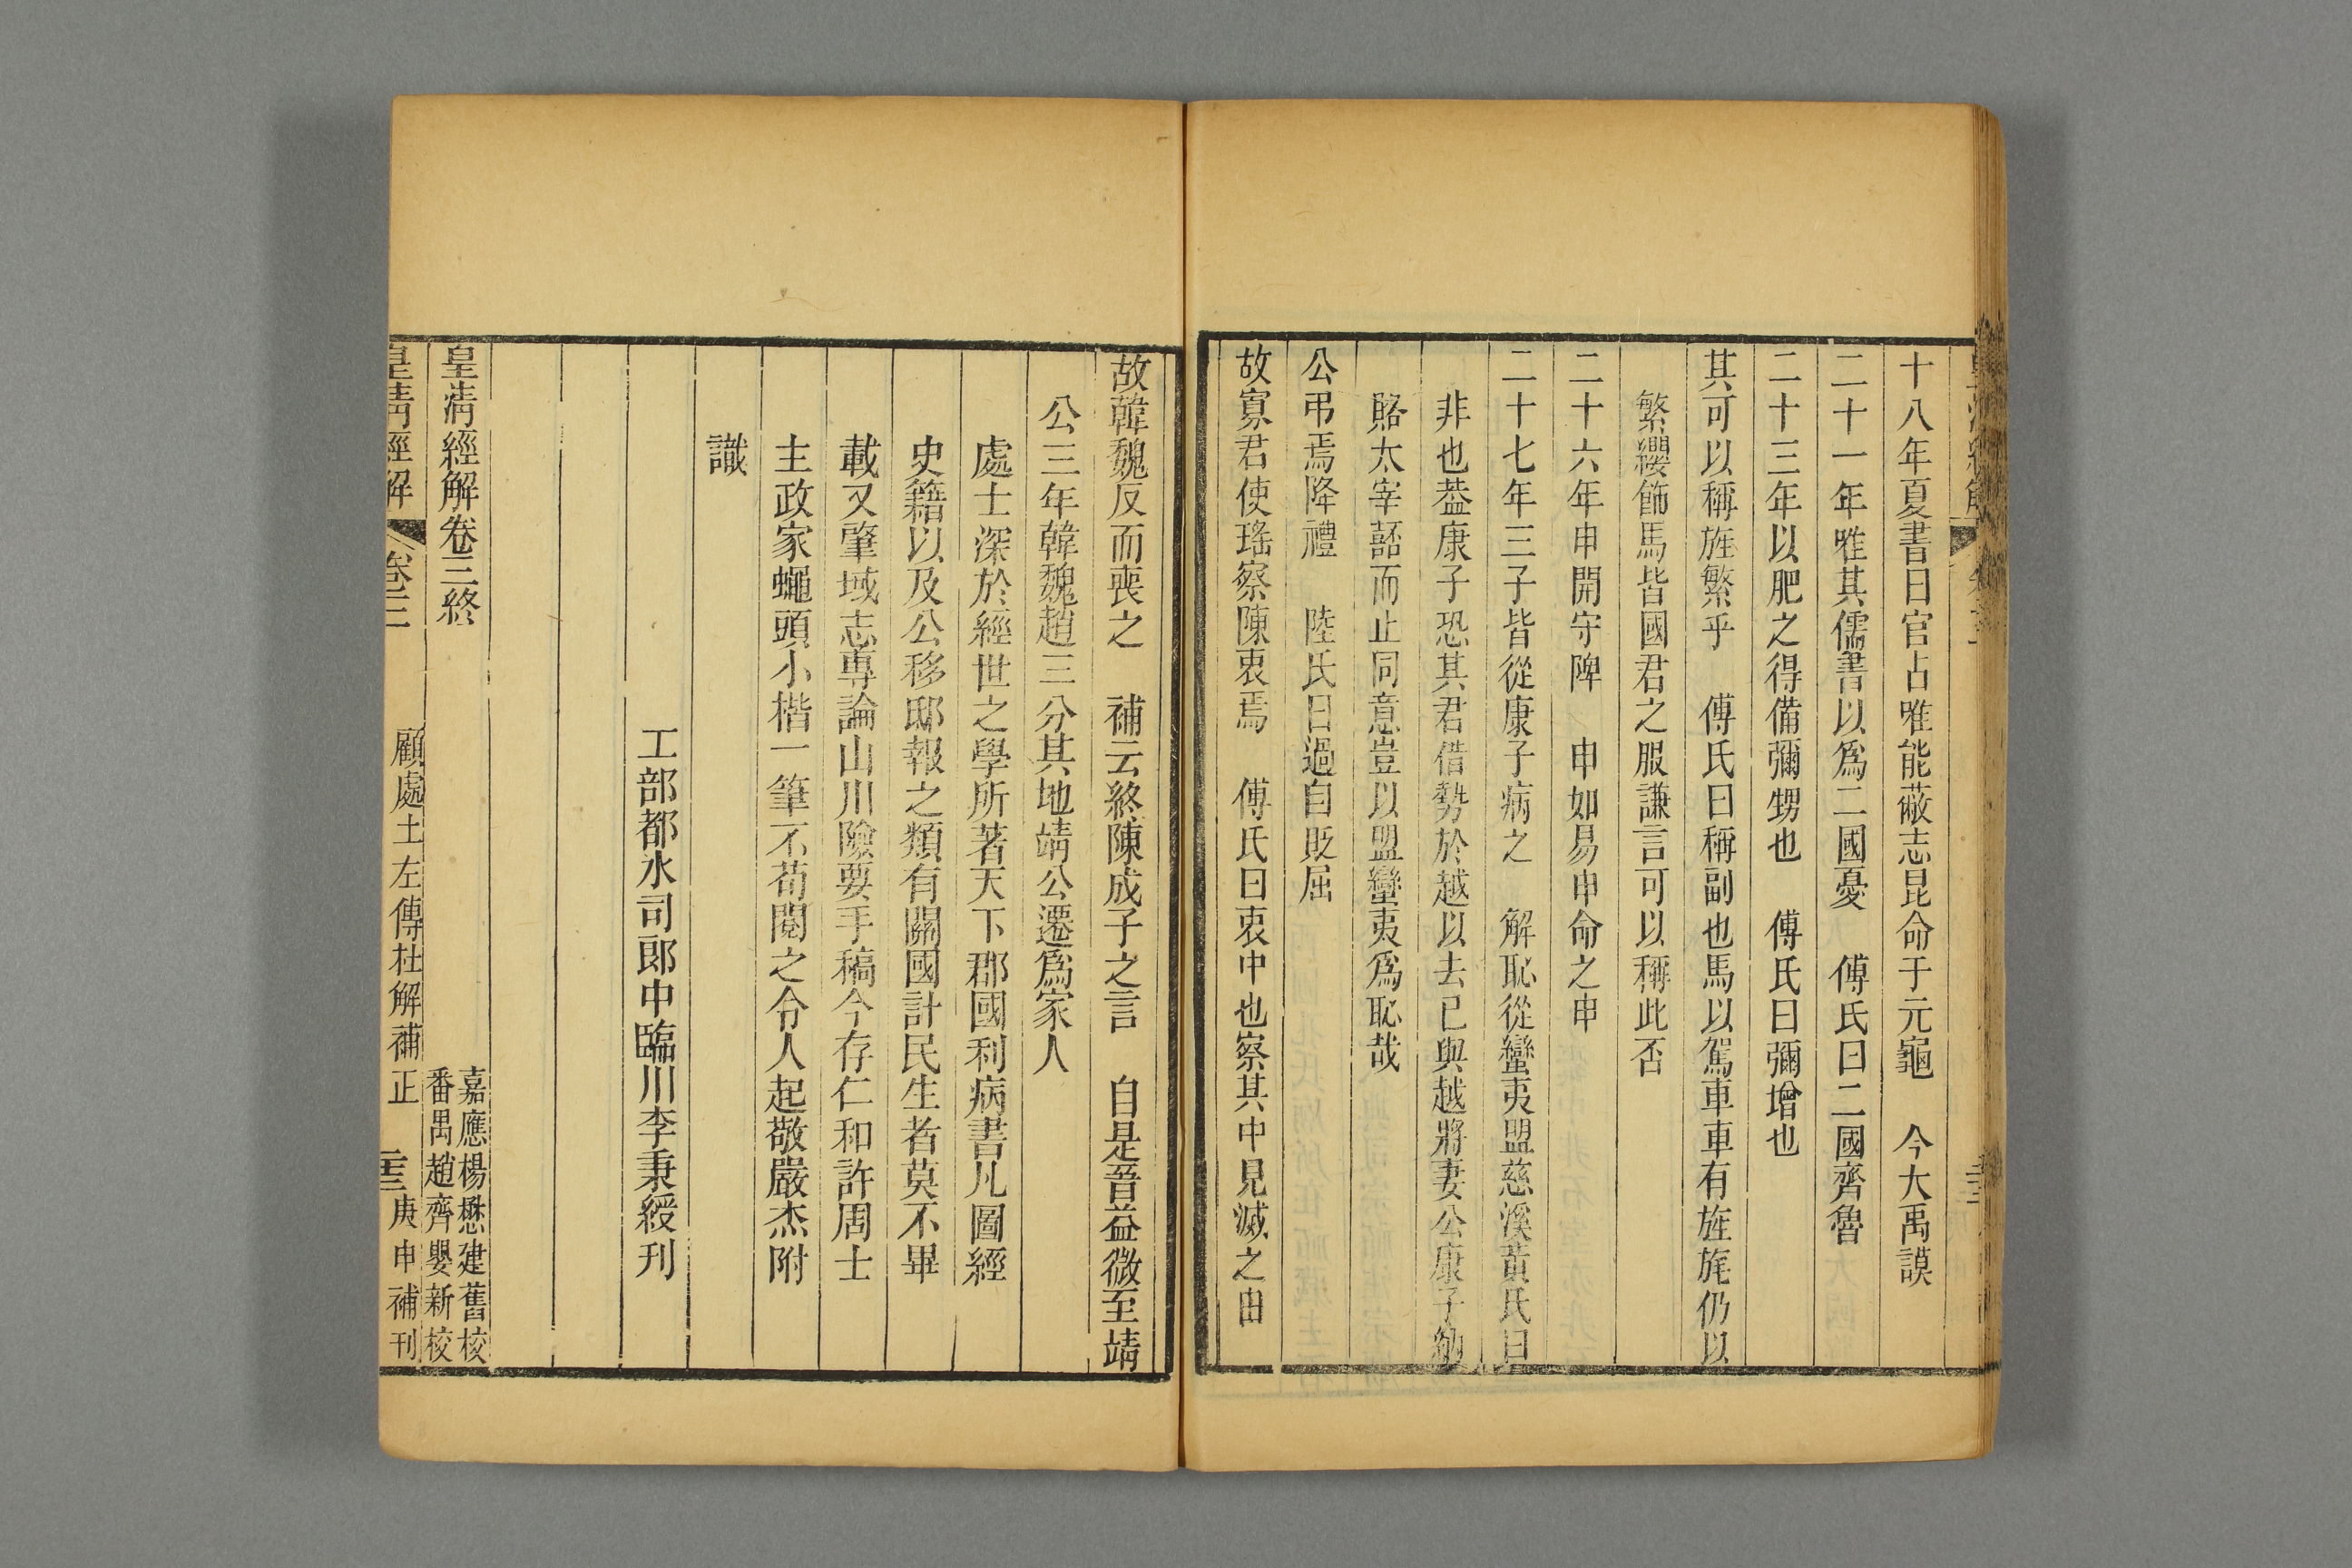 十八年夏書曰官占唯能蔽志昆命于元龜　今大禹謨
二十一年唯其儒書以爲二國憂　傅氏曰二國齊魯
二十三年以肥之得備彌甥也　傅氏曰彌增也
其可以稱旌繁乎　傅氏曰稱副也馬以駕車車有旌旄仍以
繁纓飾馬皆國君之服謙言可以稱此否
二十六年申開守陴　申如易申命之申
二十七年三子皆從康子病之　解恥從蠻夷盟慈溪黃氏曰
非也葢康子恐其君借勢於越以去已與越將妻公康子勉
賂太宰嚭而止同意豈以盟蠻夷爲恥哉
公弔焉降禮　陸氏曰過自貶屈
故寡君使瑤察陳衷焉　傅氏曰衷中也察其中見滅之由
故韓魏反而喪之　補云終陳成子之言　自是晉益微至靖
公三年韓魏趙三分其地靖公遷爲家人
處士深於經世之學所著天下郡國利病書凡圖經
史籍以及公移邸報之類有關國計民生者莫不畢
載又肇域志專論山川險要手稿今存仁和許周士
主政家蠅頭小楷一筆不苟閱之令人起敬嚴杰附
識
工部都水司郎中臨川李秉綬刊
皇淸經解卷三終
嘉應楊懋建舊校
番禺趙齊嬰新校
皇淸經解　卷三　顧處士左傳杜解補正　三　庚申補刊